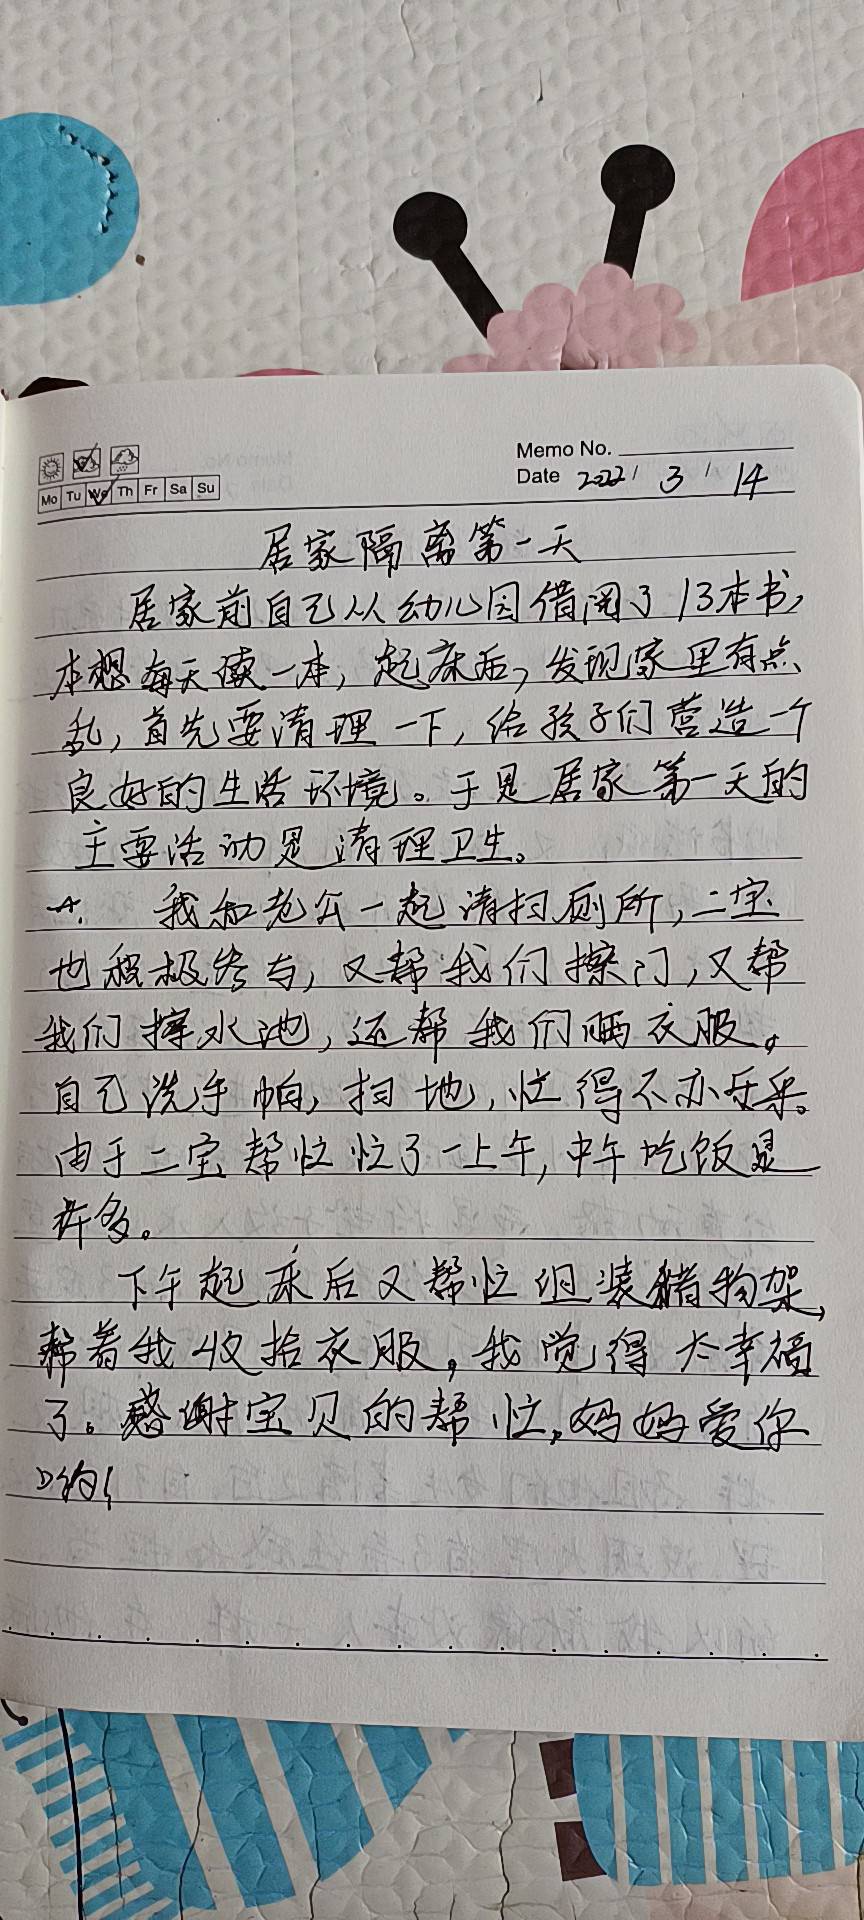 Memo No.
Mo Tu We Th Fr Sa Su
Date 2022 / 3 / 14
居家隔离第一天
居家前自己从幼儿园借阅了13本书,
本想每天读一本,起床后,发现家里有点
乱,首先要清理一下,给孩子们营造一个
良好的生活环境。于是居家第一天的
主要活动是清理卫生。
我和老公一起清扫厕所,二宝
也积极参与,又帮我们擦门,又帮
我们擦水池,还帮我们晒衣服。
自己洗手帕,扫地,忙得不亦乐乎。
由于二宝帮忙忙了一上午,中午吃饭是
许多。
下午起床后又帮忙组装储物架,
帮着我收拾衣服,我觉得太幸福
了。感谢宝贝的帮忙,妈妈爱你